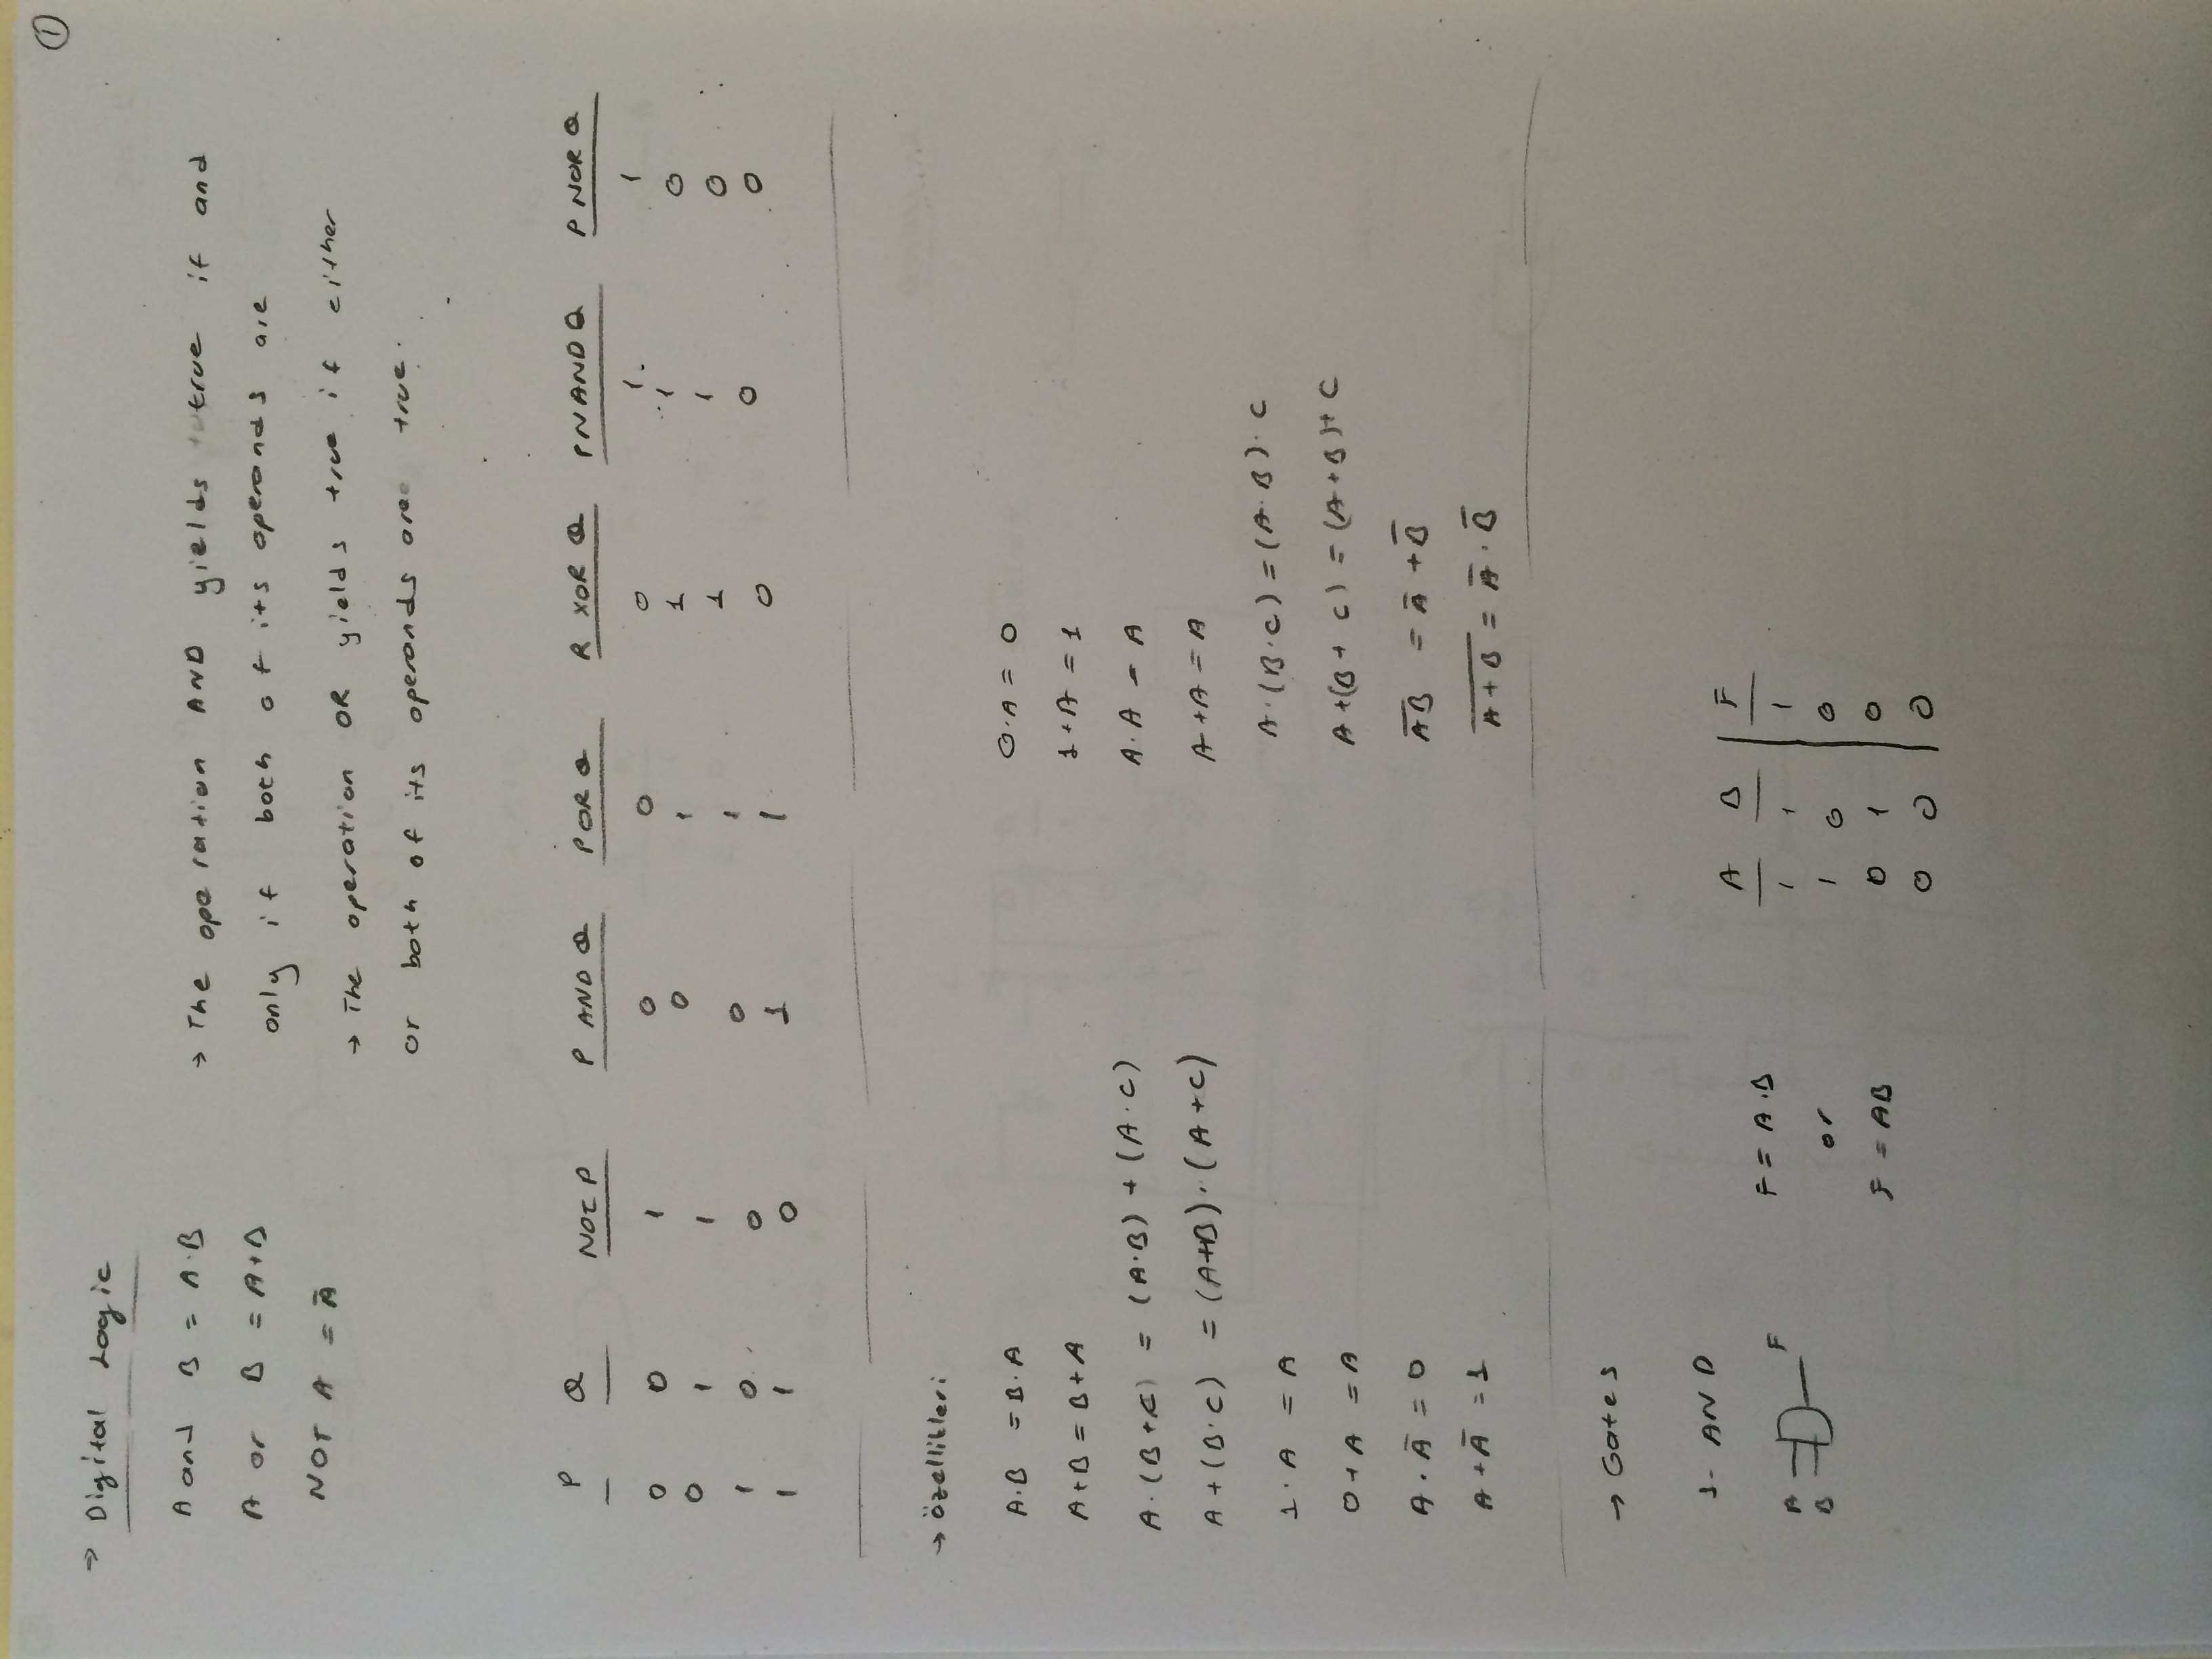 ①
→ Digital Logic
A and B = A·B
A or B = A+B
NOT A = Ā
→ The operation AND yields true if and
only if both of its operands are
→ The operation OR yields true if either
or both of its operands are true.
P Q NOT P P AND Q P OR Q R XOR Q P NAND Q P NOR Q
0 0 1 0 0 0 1 1
0 1 1 0 1 1 1 0
1 0 0 0 1 1 1 0
1 1 0 1 1 0 0 0
→ özellikleri
A·B = B·A
A+B = B+A
A·(B+C) = (A·B) + (A·C)
A+(B·C) = (A+B)·(A+C)
1·A = A
0+A = A
A·Ā = 0
A+Ā = 1
0·A = 0
1+A = 1
A·A = A
A+A = A
A·(B·C) = (A·B)·C
A+(B+C) = (A+B)+C
A̅B̅ = Ā + B̅
A̅+̅B̅ = Ā · B̅
→ Gates
1- AND
A
B
F
F = A·B
or
F = AB
A B F
1 1 1
1 0 0
0 1 0
0 0 0